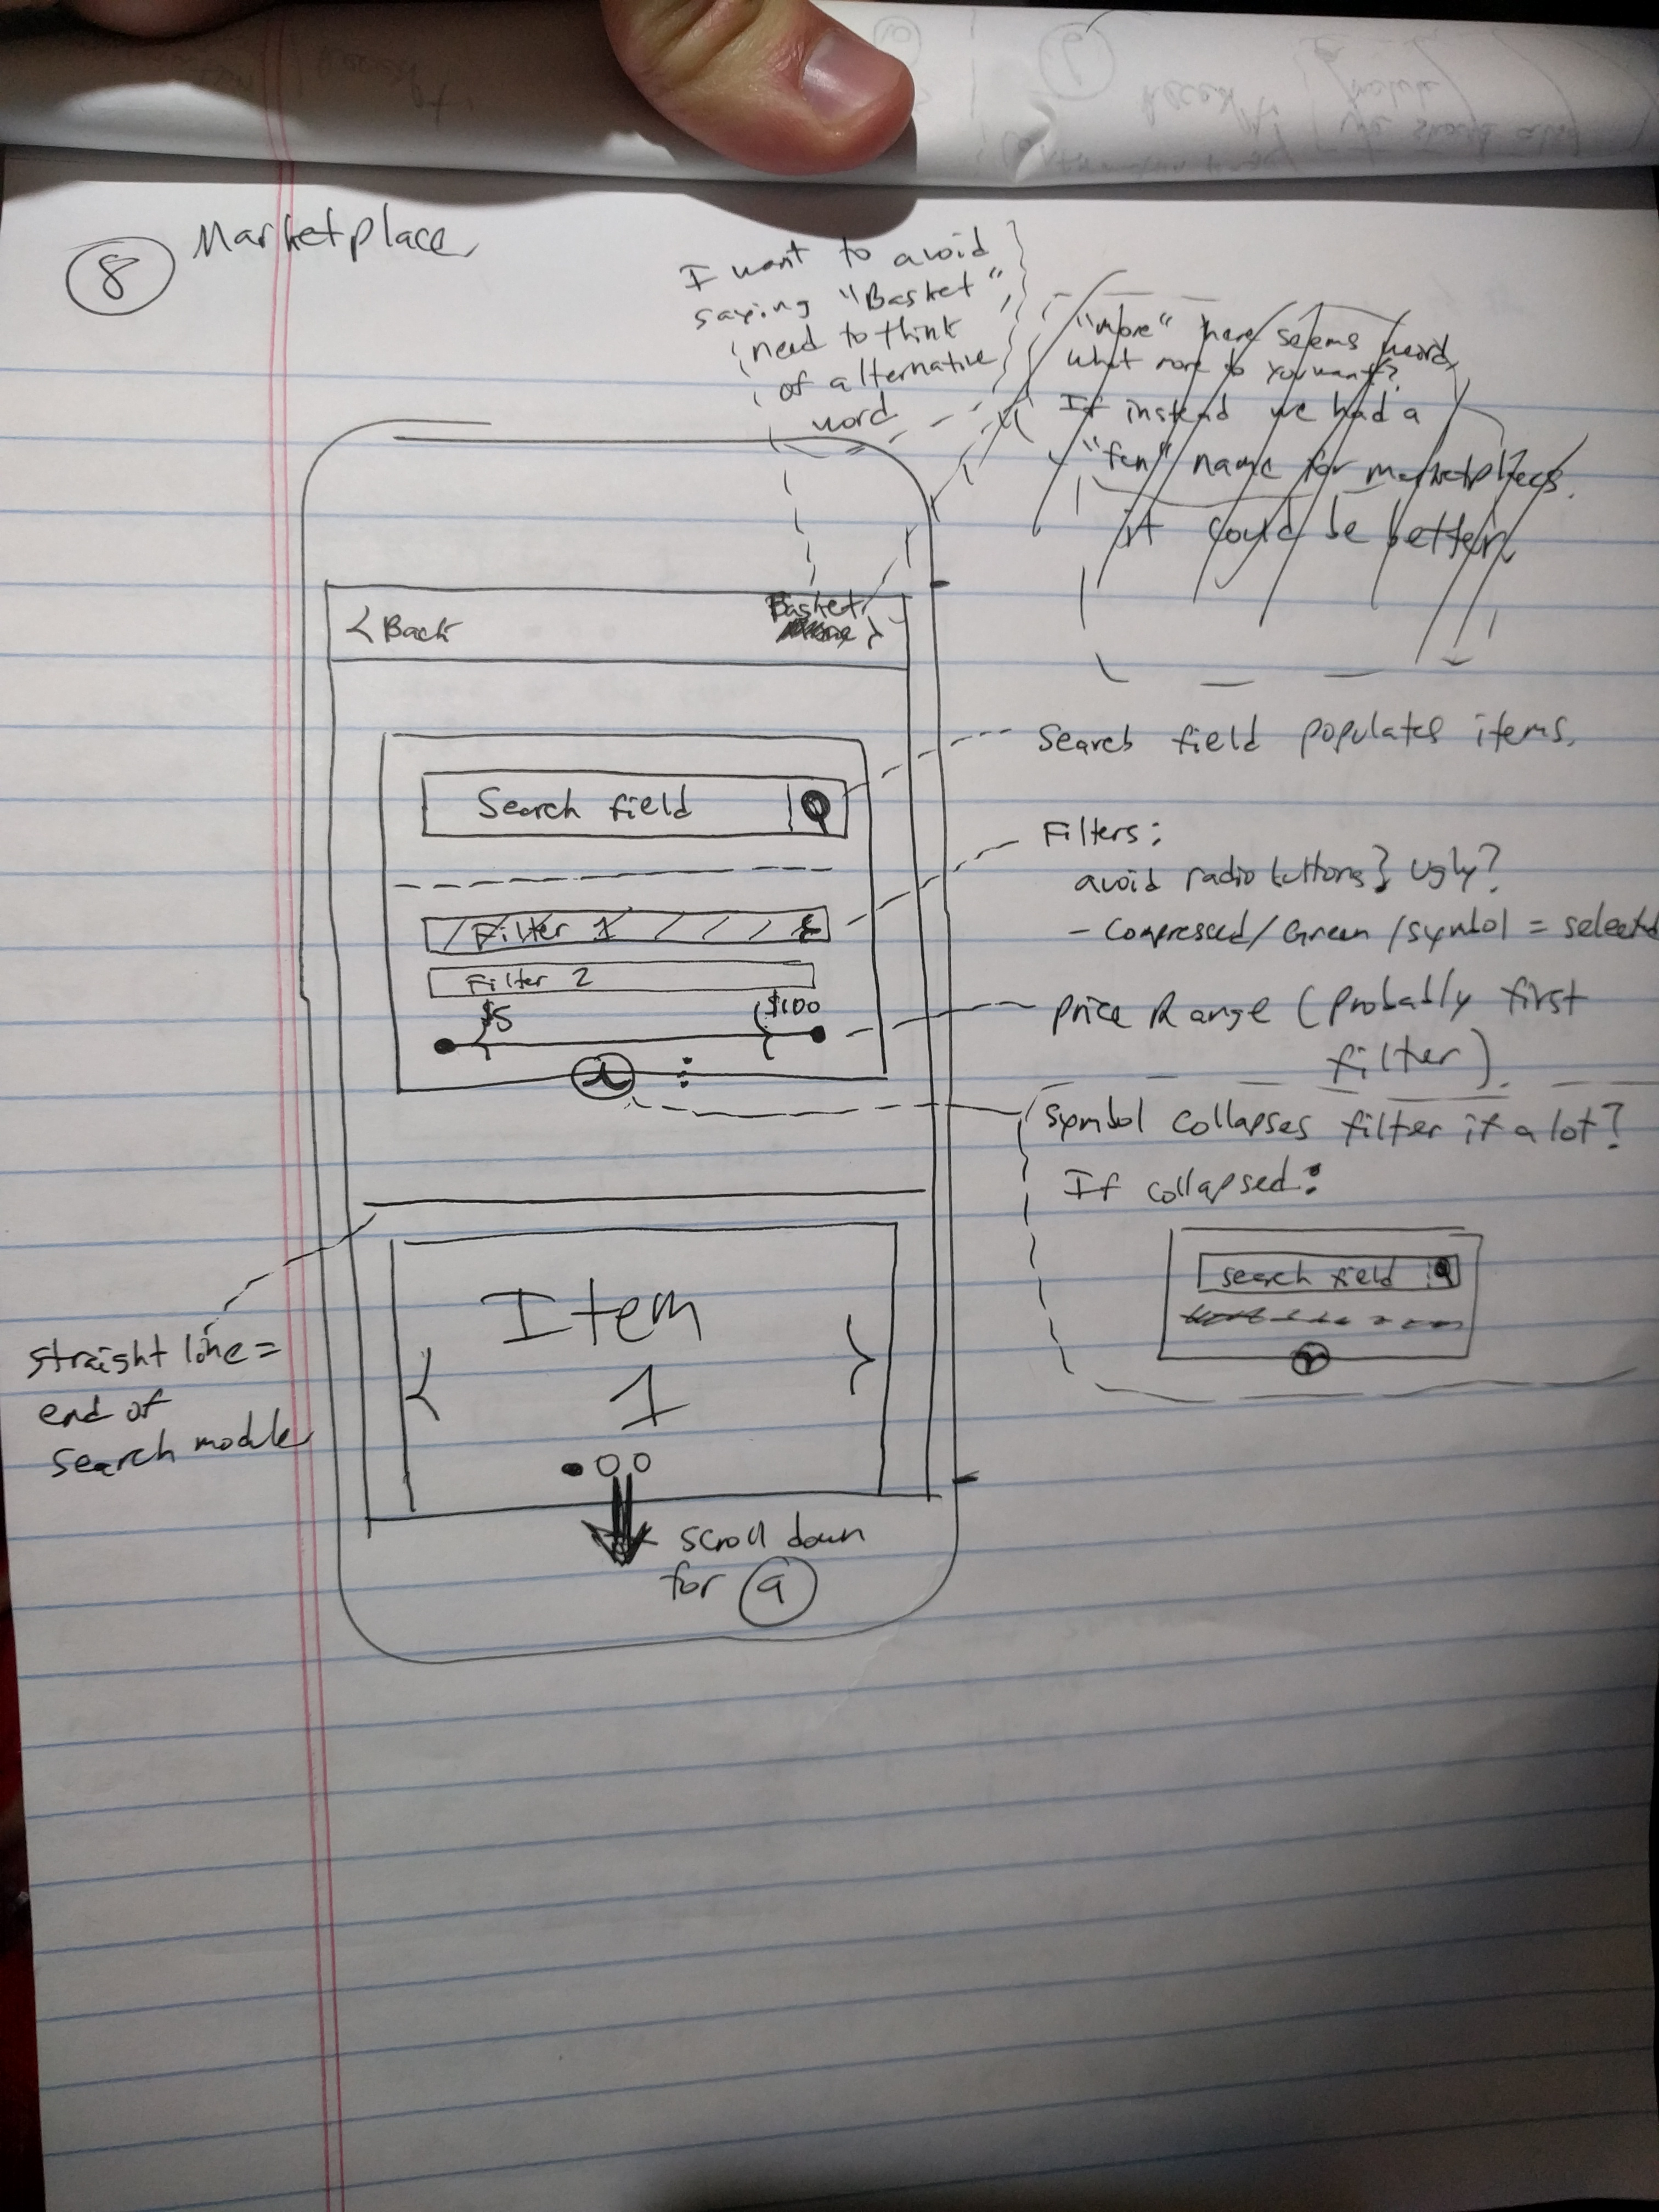 8 Marketplace
I want to avoid
saying "Basket",
need to think
of alternative
word
"more" here seems weird
what more do you want?
If instead we had a
"fun" name for marketplaces.
it could be better.
< Back
Basket >
Search field
Search field populates items.
Filters:
avoid radio buttons} ugly?
- Compressed/Green/symbol = selected
Filter 1
Filter 2
$5 $100
price Range (probably first
filter).
symbol collapses filter if a lot?
If collapsed:
search field
straight line =
end of
search module
Item
1
< >
scroll down
for 9